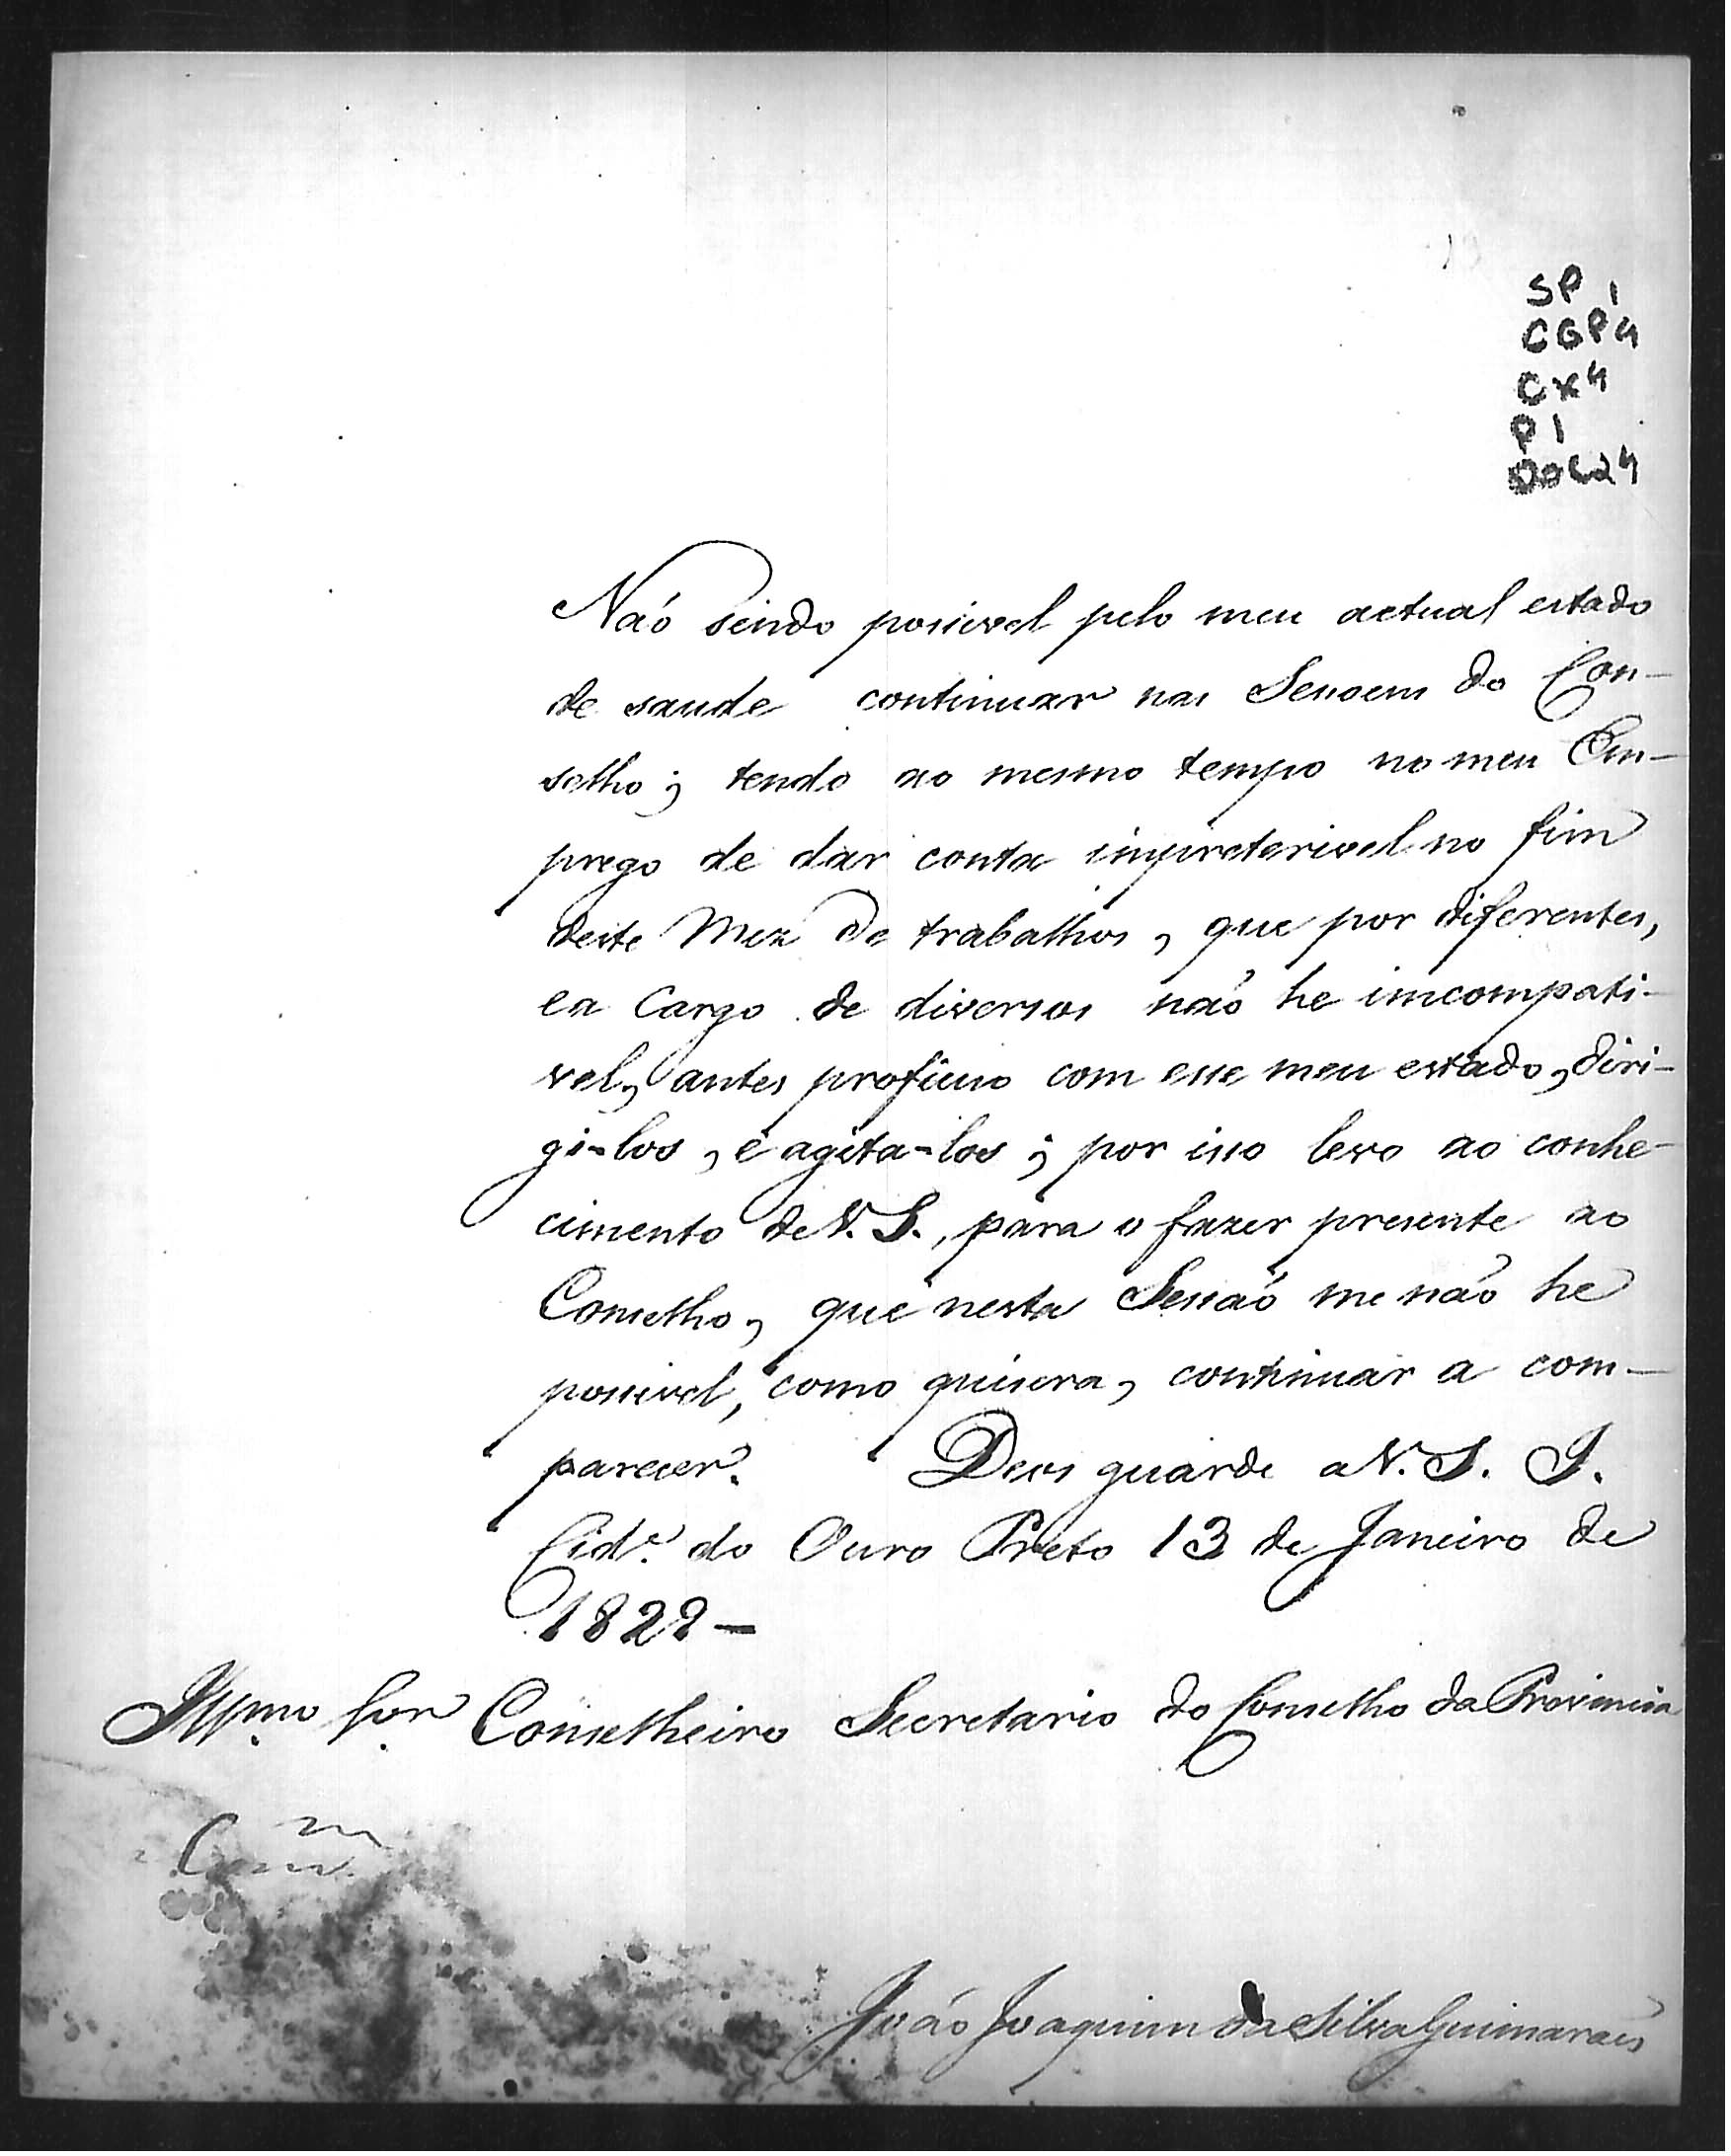 SP 1
CGP 4
CX 4
P 1
DOC 24
Naõ sendo possivel pelo meu actual estado
de saude continuar nas Sessoens do Con-
selho; tendo ao mesmo tempo no meu Em-
prego de dar conta impreterivel no fim
deste Mez de trabalhos, que por diferentes,
e a Cargo de diversos naõ he imcompati-
vel, antes proficuo com esse meu estado, diri-
gi-los, e agita-los; por isso levo ao conhe-
cimento de V. S., para o fazer presente ao
Conselho, que nesta Sessaõ me naõ he
possivel, como quisera, continuar a com-
parecer. Deos guarde a V. S. I.
Cid.e do Ouro Preto 13 de Janeiro de
1828 -
Illmo Snr Conselheiro Secretario do Conselho da Provincia
João Joaquim da Silva Guimaraẽs